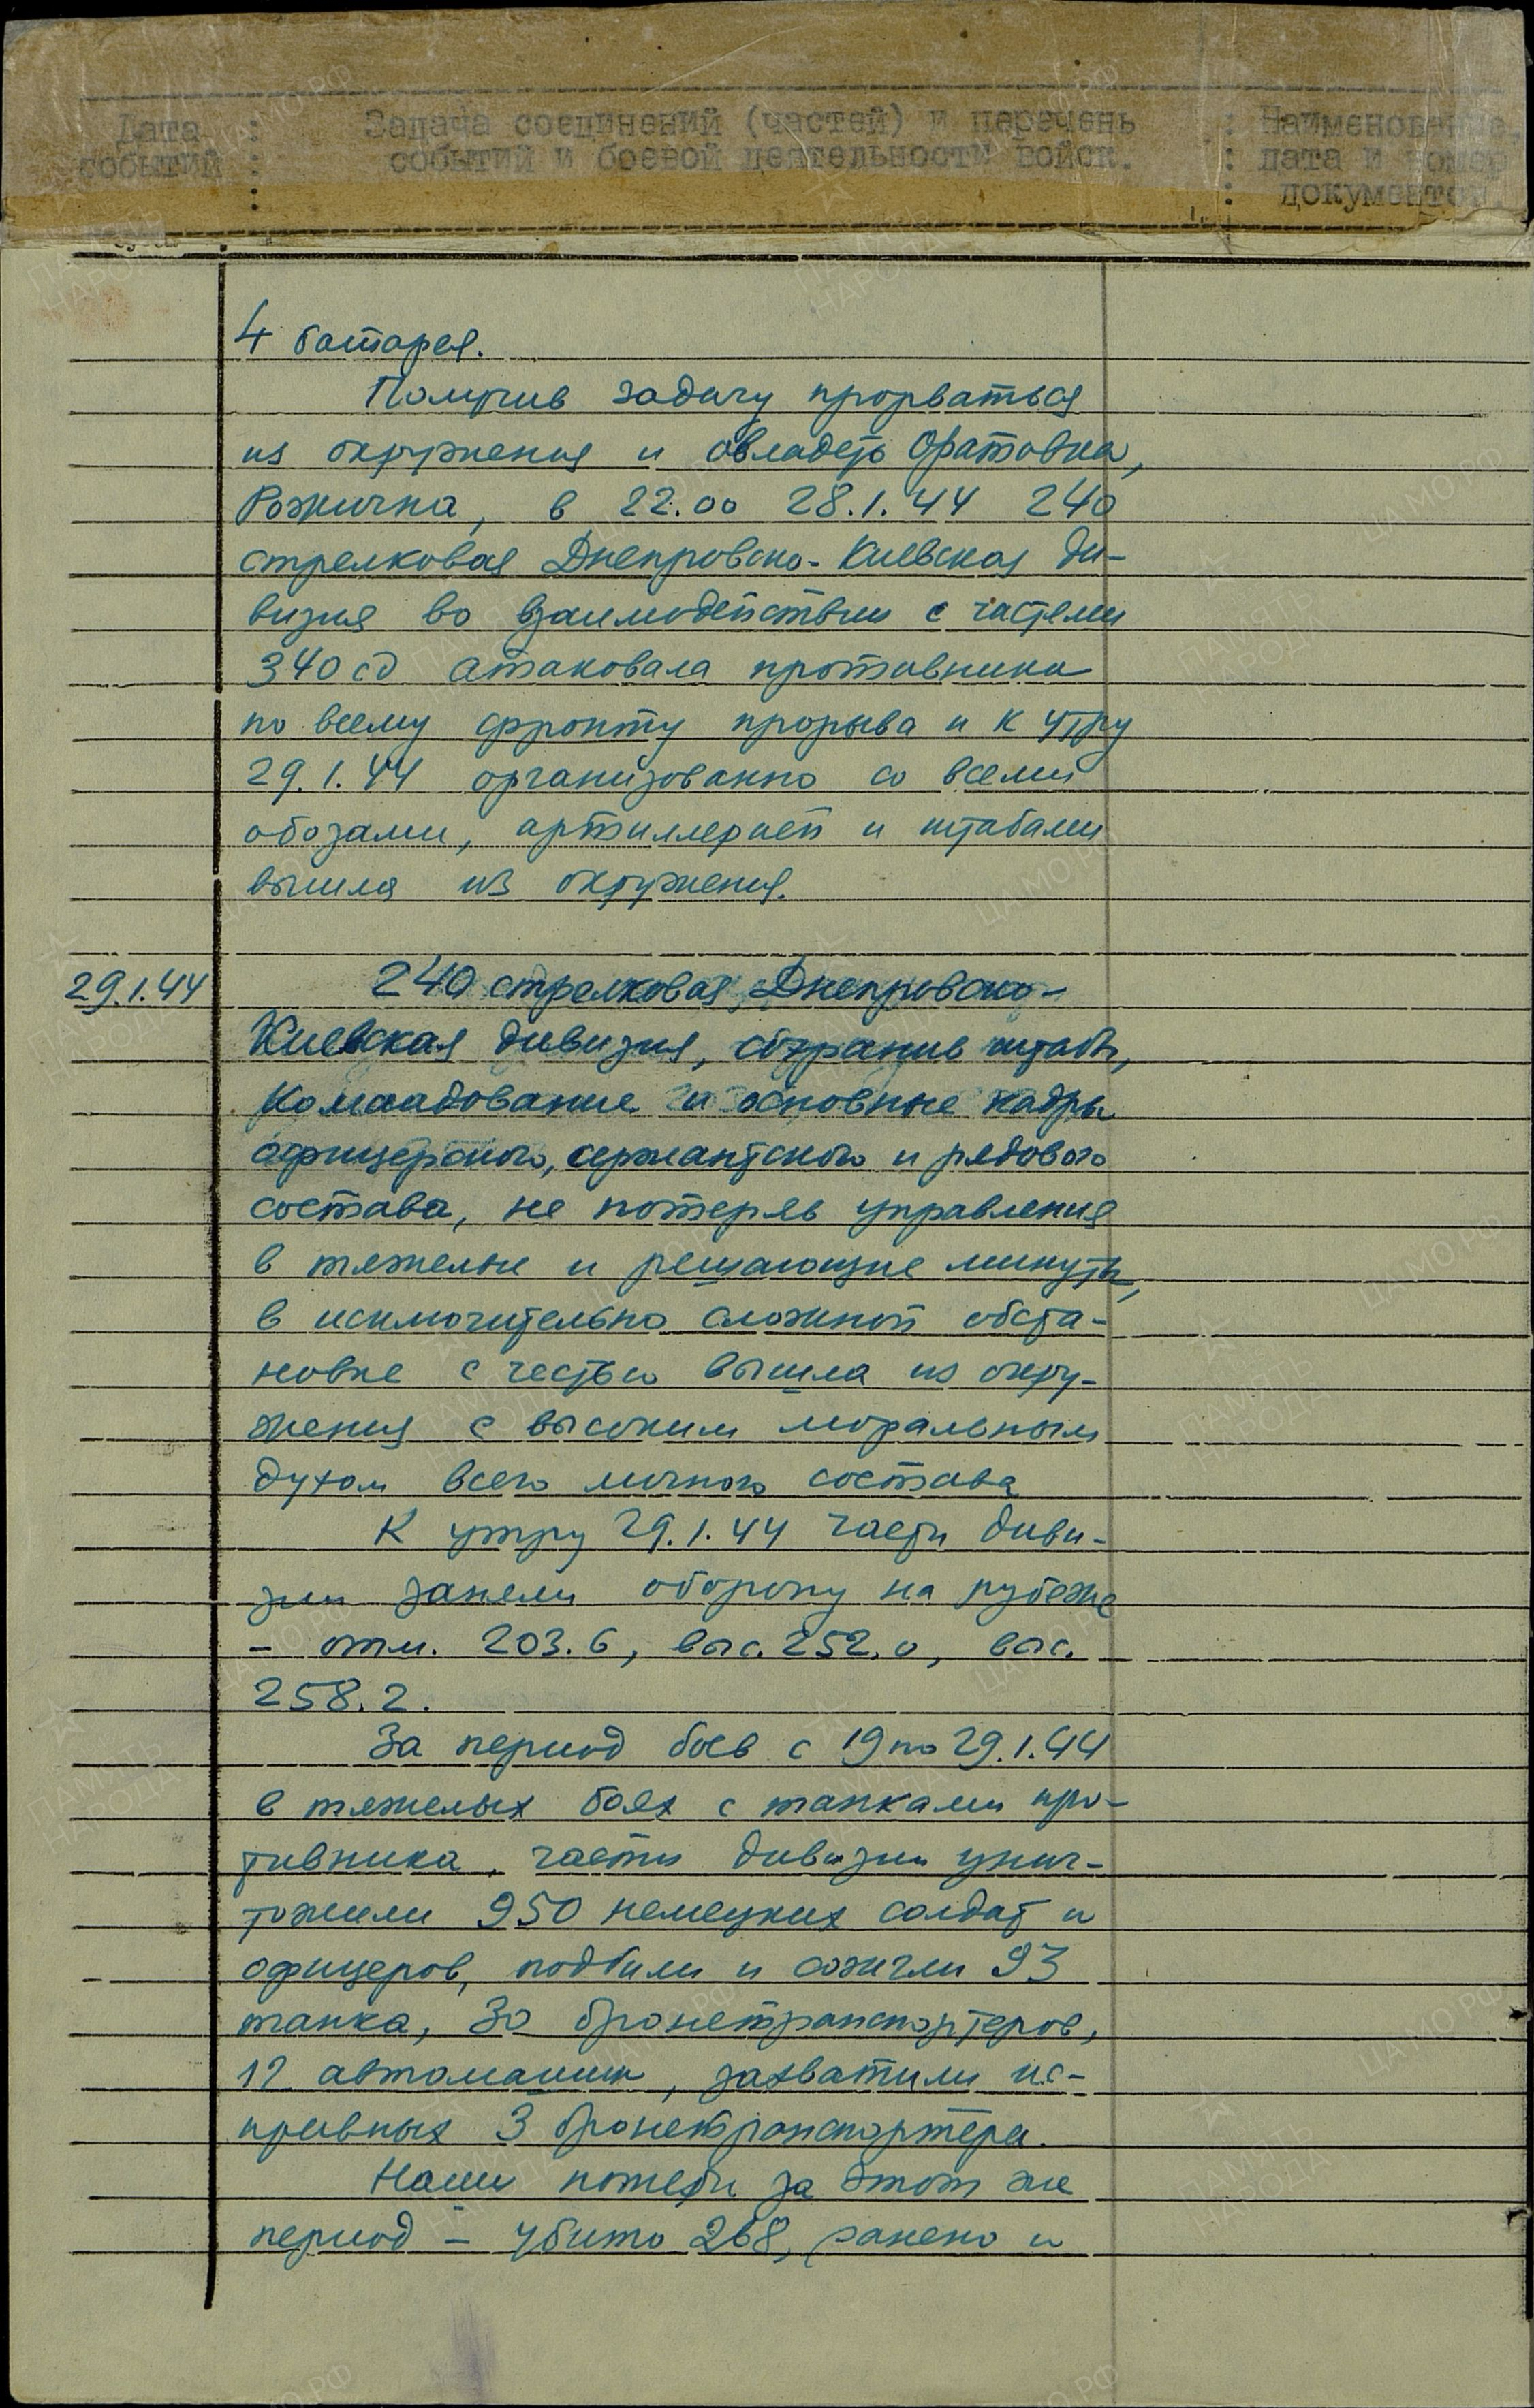 Дата : Задача соединений (частей) и перечень : Наименование,
событий : событий и боевой деятельности войск. : дата и номер
: : документов.
4 батарея.
Получив задачу прорваться
из окружения и овладеть Оратовка,
Рожична, в 22.00 28.1.44 240
стрелковая Днепровско-Киевская ди-
визия во взаимодействии с частями
340 сд атаковала противника
по всему фронту прорыва и к утру
29.1.44 организованно со всеми
обозами, артиллерией и штабами
вышла из окружения.
29.1.44 240 стрелковая Днепровско-
Киевская дивизия, сохранив штабы,
командование и основные кадры
офицерского, сержантского и рядового
состава, не потеряв управления
в тяжелые и решающие минуты,
в исключительно сложной обста-
новке с честью вышла из окру-
жения с высоким моральным
духом всего личного состава
К утру 29.1.44 части диви-
зии заняли оборону на рубеже
- отм. 203.6, выс. 252.0, выс.
258.2.
За период боев с 19 по 29.1.44
в тяжелых боях с танками про-
тивника, части дивизии унич-
тожили 950 немецких солдат и
офицеров, подбили и сожгли 93
танка, 30 бронетранспортеров,
12 автомашин, захватили ис-
правных 3 бронетранспортера.
Наши потери за этот же
период - убито 268, ранено и